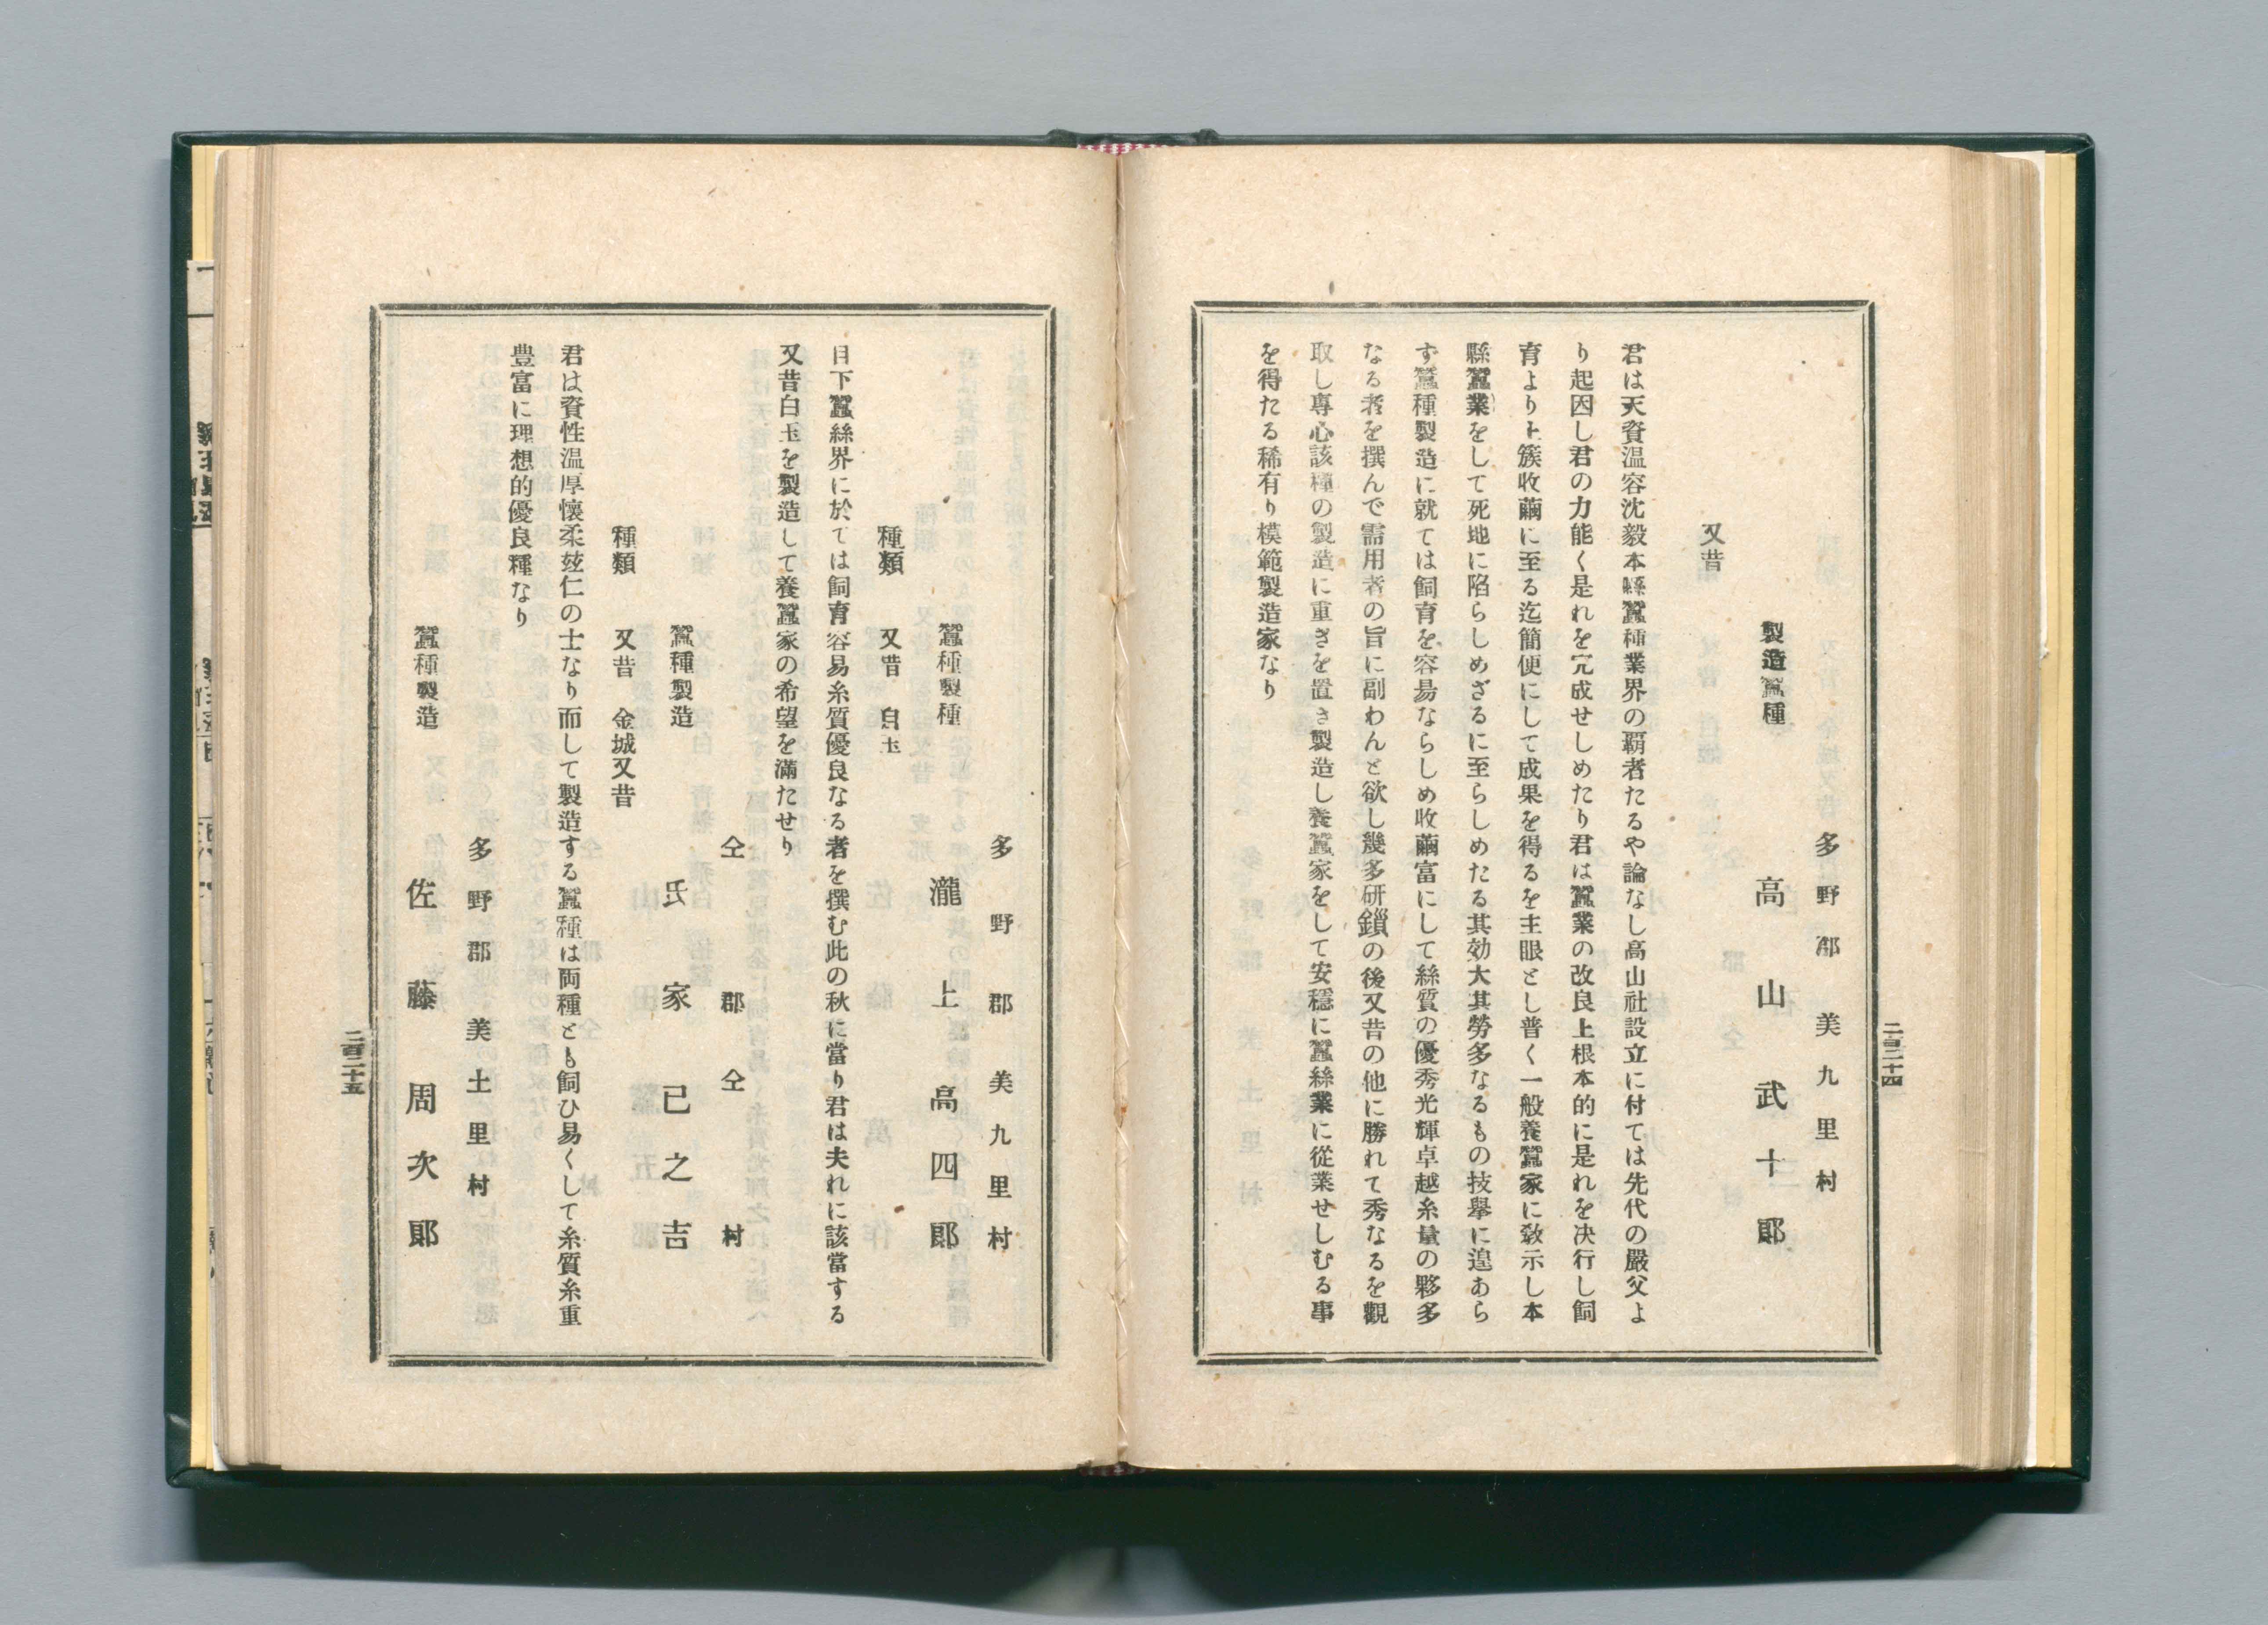 二百二十四
多野郡美九里村
製造蠶種　高山武十郎
又昔
君は天資温容沈毅本縣蠶種業界の覇者たるや論なし高山社設立に付ては先代の嚴父よ
り起因し君の力能く是れを完成せしめたり君は蠶業の改良上根本的に是れを決行し飼
育より上簇收繭に至る迄簡便にして成果を得るを主眼とし普く一般養蠶家に敎示し本
縣蠶業をして死地に陷らしめざるに至らしめたる其効大其勞多なるもの技擧に遑あら
ず蠶種製造に就ては飼育を容易ならしめ收繭富にして絲質の優秀光輝卓越糸量の夥多
なる者を撰んで需用者の旨に副わんと欲し幾多研鎖の後又昔の他に勝れて秀なるを觀
取し專心該種の製造に重きを置き製造し養蠶家をして安穩に蠶絲業に從業せしむる事
を得たる稀有り模範製造家なり
多野郡美九里村
蠶種製種　瀧上高四郎
種類　又昔　白玉
目下蠶絲界に於ては飼育容易糸質優良なる者を撰む此の秋に當り君は夫れに該當する
又昔白玉を製造して養蠶家の希望を滿たせり
仝郡仝村
蠶種製造　氏家已之吉
種類　又昔　金城又昔
君は資性温厚懷柔玆仁の士なり而して製造する蠶種は両種とも飼ひ易くして糸質糸重
豊富に理想的優良種なり
多野郡美土里村
蠶種製造　佐藤周次郎
二百二十五